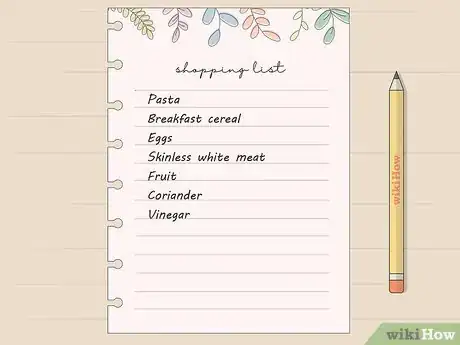 shopping list
Pasta
Breakfast cereal
Eggs
Skinless white meat
Fruit
Coriander
Vinegar
wikiHow
wikiHow